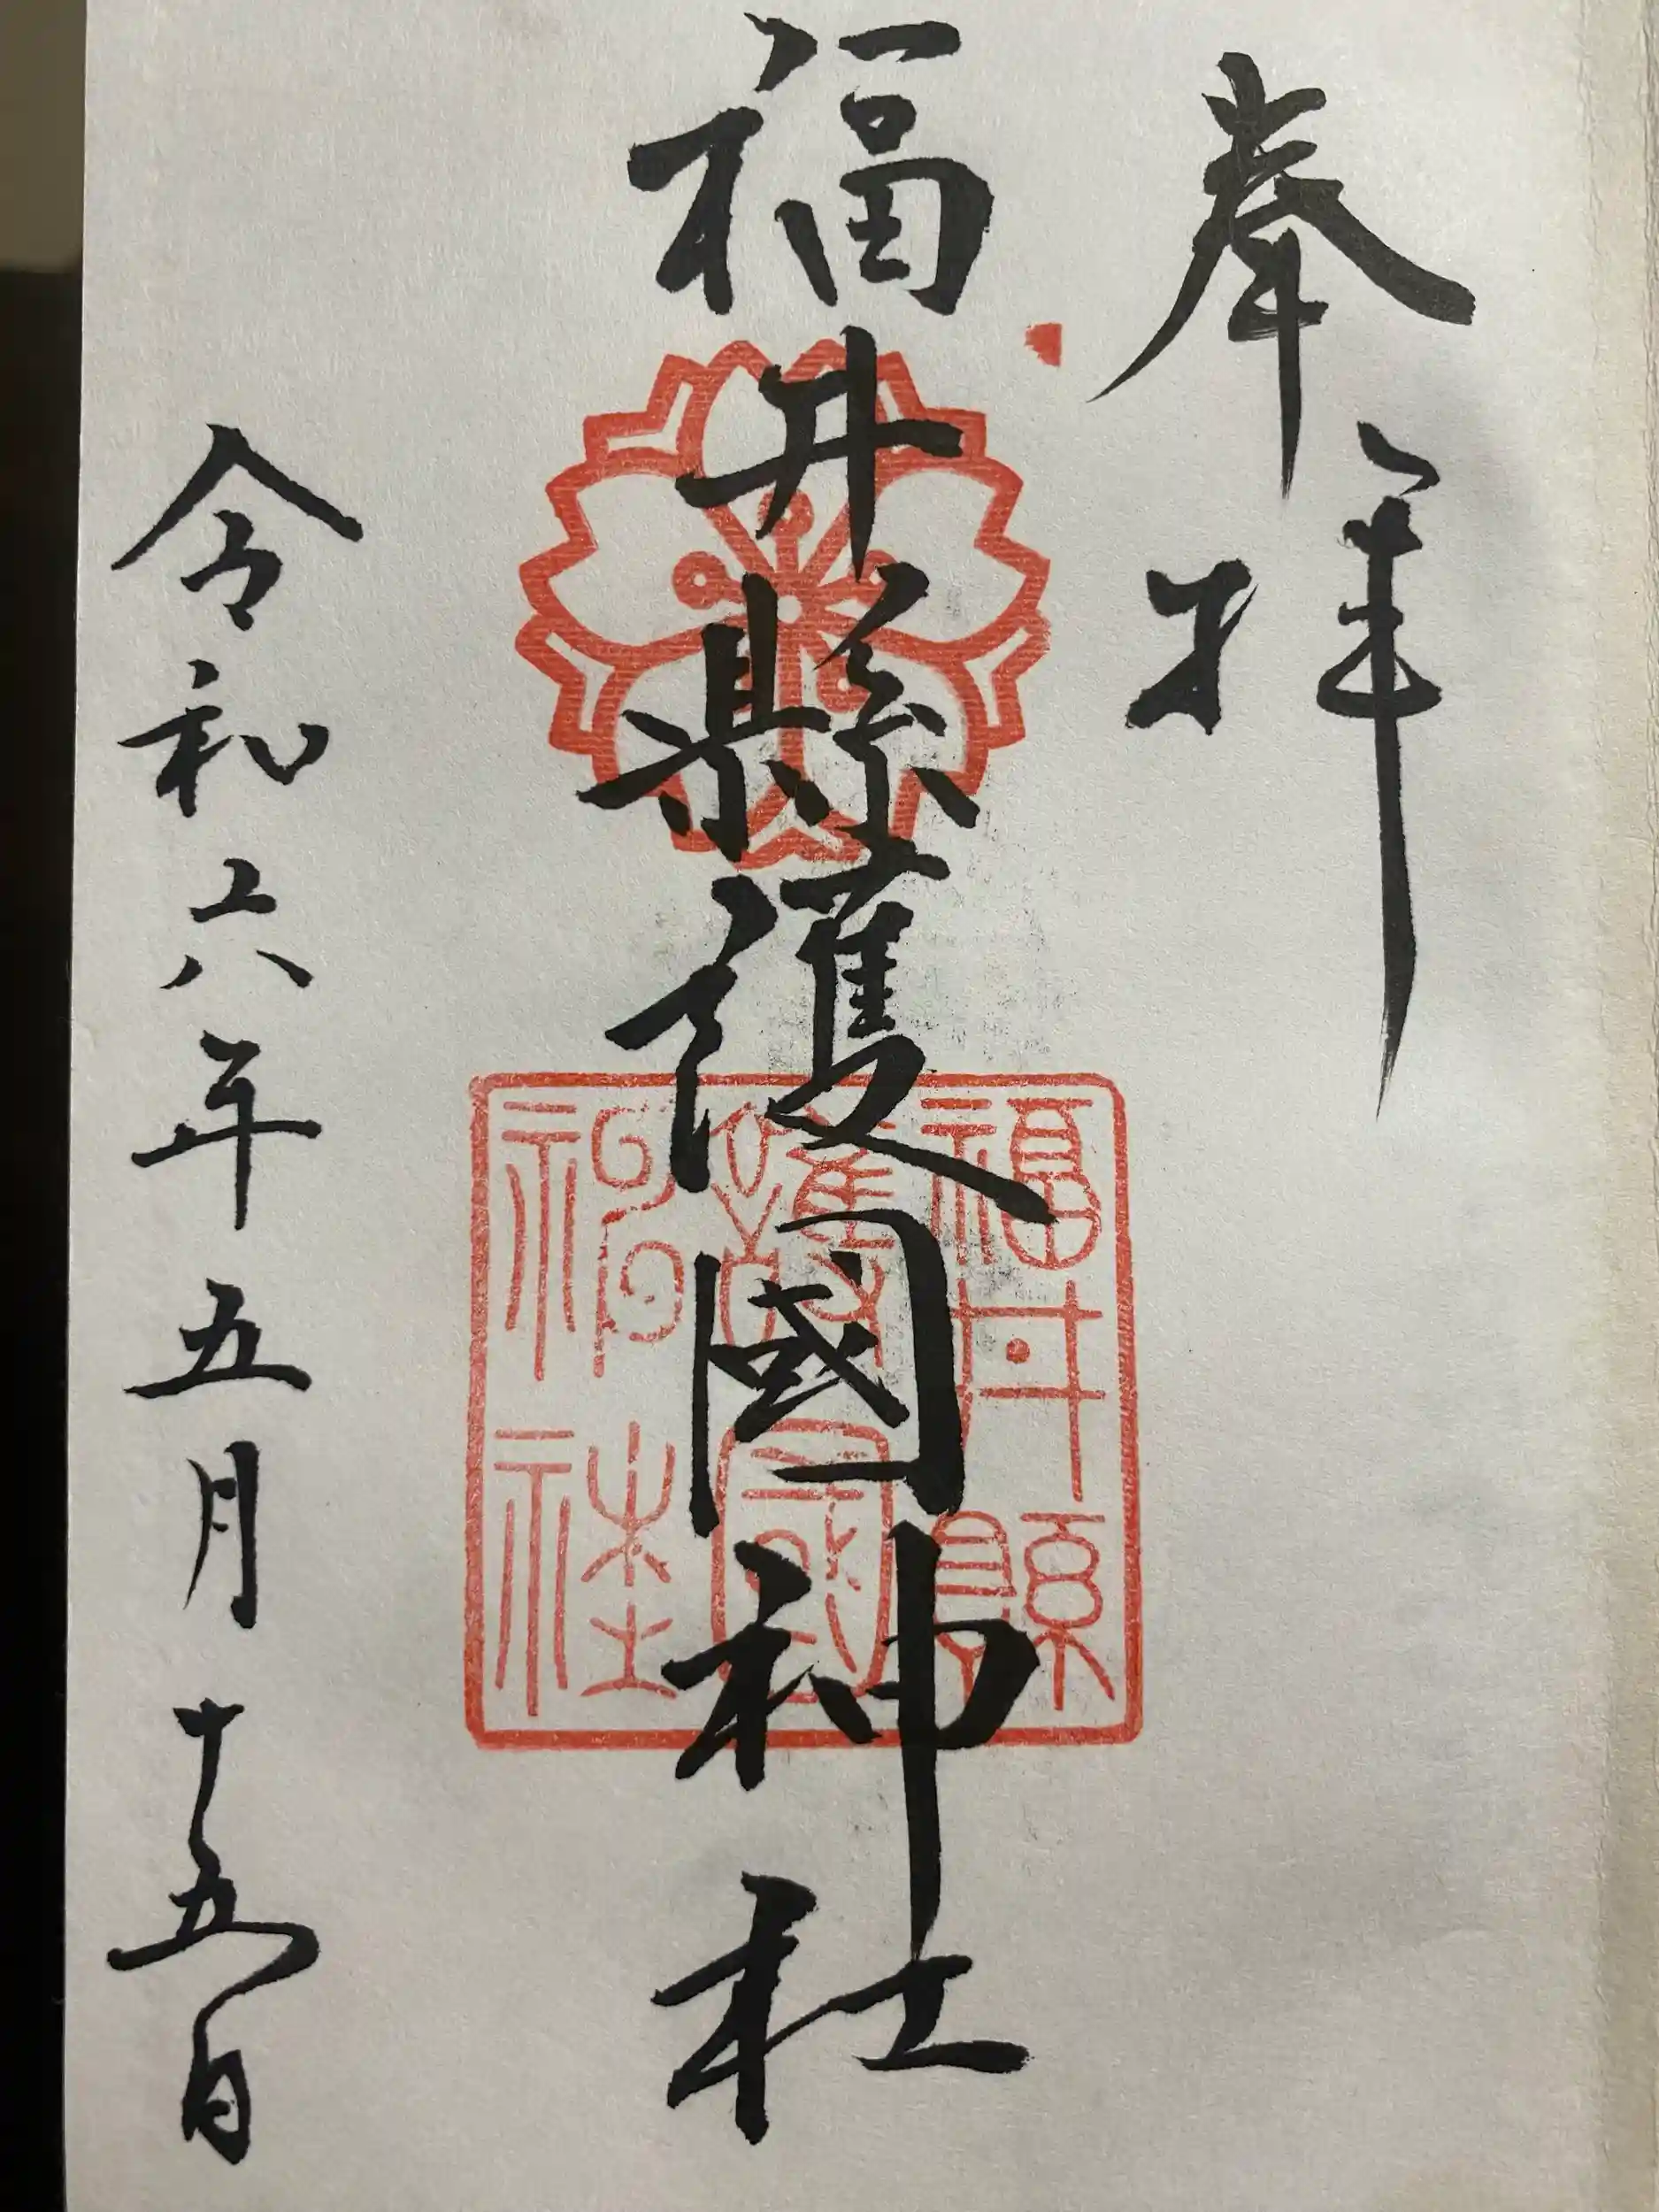 奉拝
福井縣護國神社
福井縣
護國
神社
令和六年五月十五日